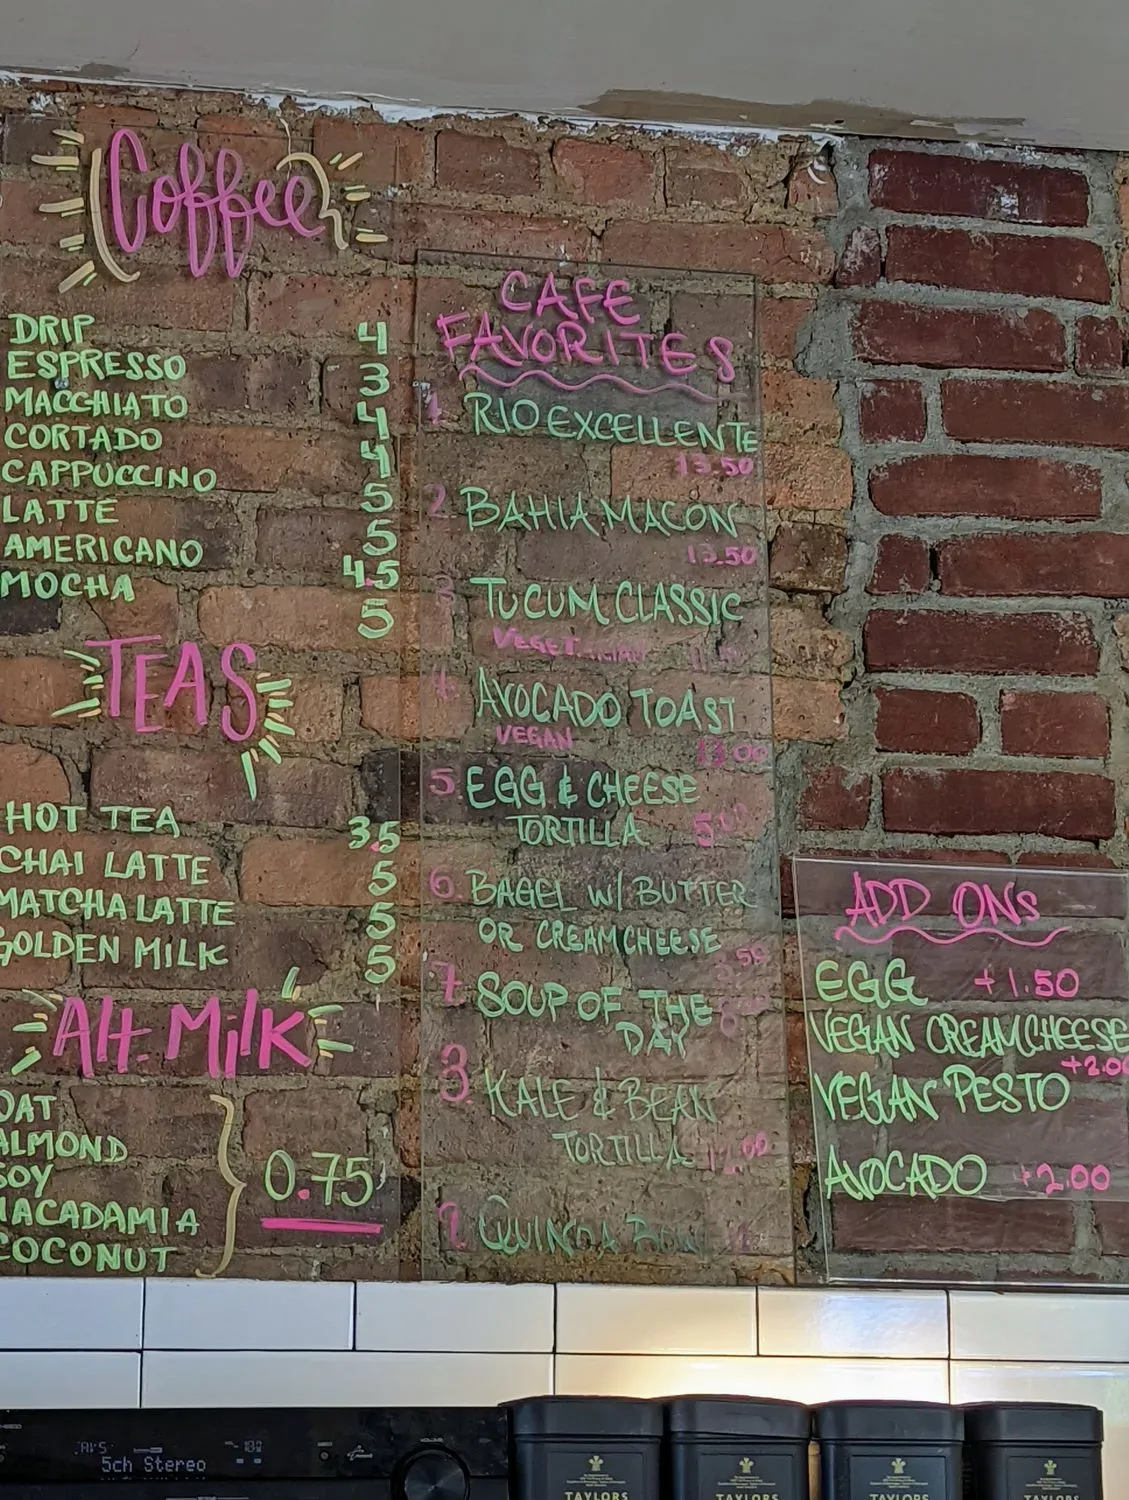 Coffee
DRIP 4
ESPRESSO 3
MACCHIATO 4
CORTADO 4
CAPPUCCINO 5
LATTE 5
AMERICANO 4.5
MOCHA 5
TEAS
HOT TEA 3.5
CHAI LATTE 5
MATCHA LATTE 5
GOLDEN MILK 5
Alt. Milk
OAT
ALMOND
SOY
MACADAMIA
COCONUT
0.75
CAFE
FAVORITES
1 RIO EXCELLENTE
13.50
2 BAHIA MACON
13.50
3 TUCUM CLASSIC
VEGETARIAN
4 AVOCADO TOAST
VEGAN 13.00
5 EGG & CHEESE
TORTILLA 5.00
6 BAGEL W/ BUTTER
OR CREAM CHEESE
7 SOUP OF THE
DAY
8 KALE & BEAN
TORTILLA 12.00
9 QUINOA BOWL
ADD ONS
EGG +1.50
VEGAN CREAM CHEESE
+2.00
VEGAN PESTO
AVOCADO +2.00
5ch Stereo
VOLUME
TAYLORS
TAYLORS
TAYLORS
TAYLORS